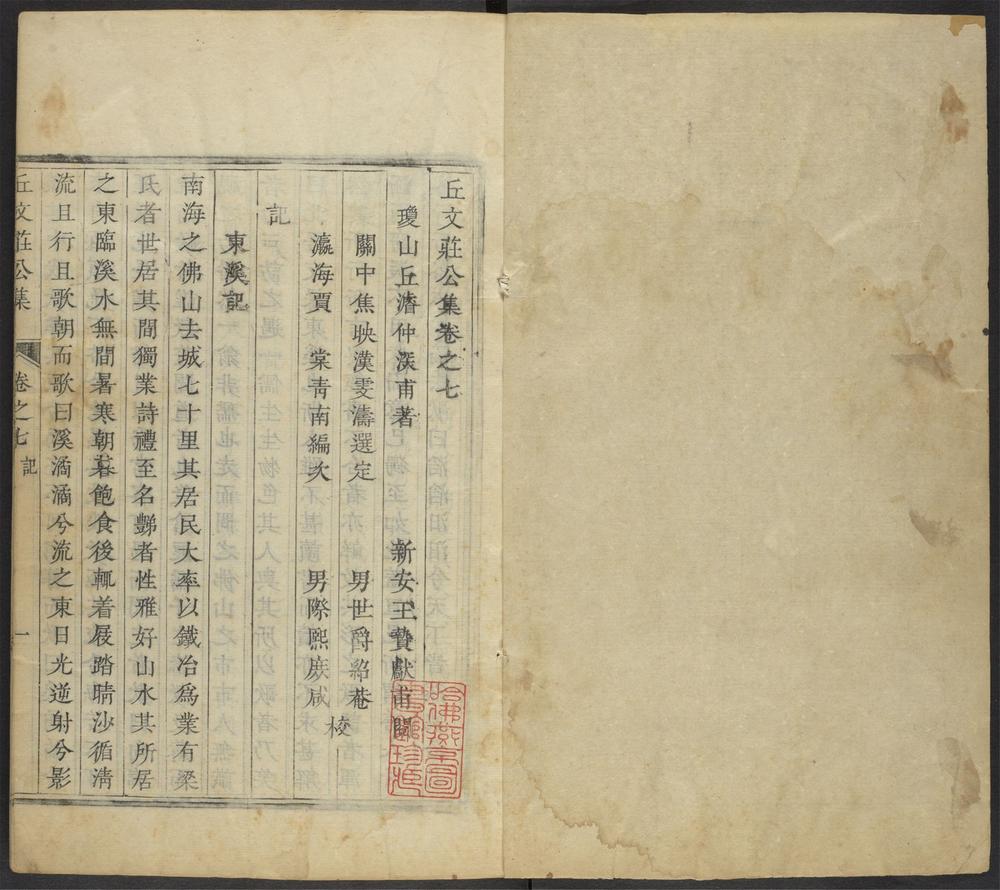 丘文莊公集卷之七
瓊山丘濬仲深甫著 新安王贄獻甫閱
關中焦映漢雯濤選定 男世爵紹菴
瀛海賈棠青南編次 男際熙族咸
校
記
東溪記
南海之佛山去城七十里其居民大率以鐵冶爲業有梁
氏者世居其間獨業詩禮至名鄸者性雅好山水其所居
之東臨溪水無間暑寒朝暮飽食後輒着屐踏晴沙循清
流且行且歌朝而歌曰溪潏潏兮流之東日光逆射兮影
丘文莊公集 卷之七 記 一
哈佛燕京圖書館珍藏